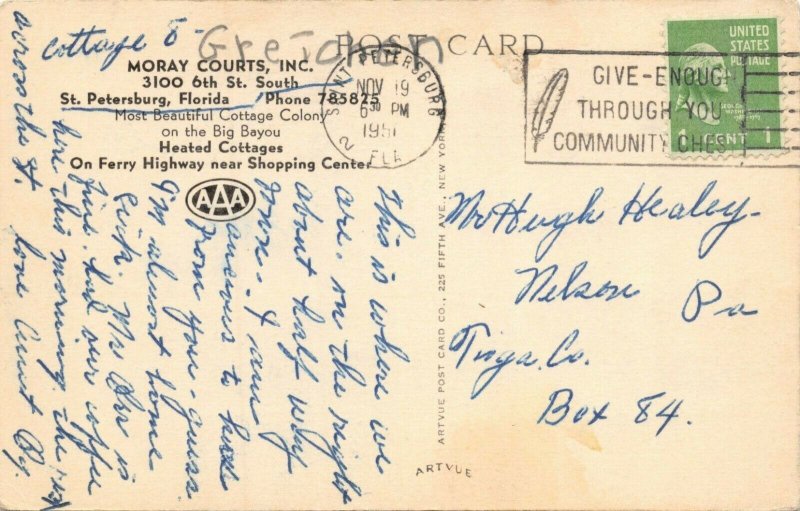 Cottage 8 -
Gretchen
POST CARD
MORAY COURTS, INC.
3100 6th St. South
St. Petersburg, Florida Phone 785825
Most Beautiful Cottage Colony
on the Big Bayou
Heated Cottages
On Ferry Highway near Shopping Center
AAA
SAINT PETERSBURG
2
NOV 19
6 30 PM
1951
FLA
GIVE-ENOUGH
THROUGH YOU
COMMUNITY CHEST
UNITED
STATES
POSTAGE
1 CENT 1
This is where we
are. on the right
about half way
down. I am
anxious to hear
from you - guess
I'm almost home
sick. Mr Orr is
fine. had our coffee
here this morning. the 1st
across the st. love Aunt By.
Mr Hugh Healey -
Nelson Pa
Tioga Co.
Box 84.
ARTVUE POST CARD CO., 225 FIFTH AVE., NEW YORK
ARTVUE